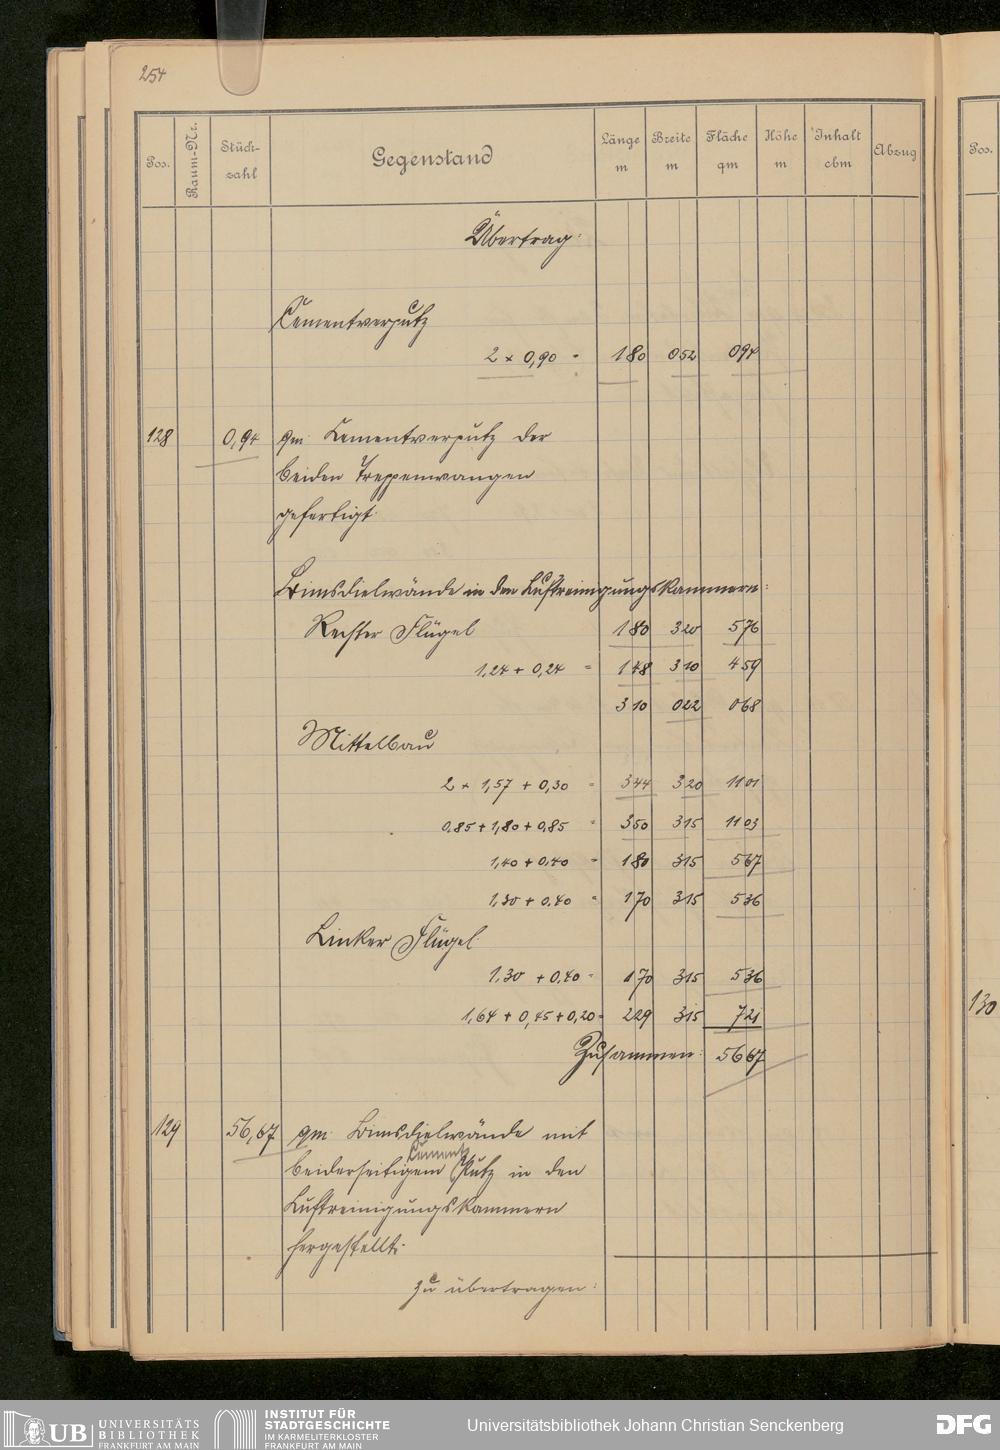 254
Pos. Raum-Nr. Stück-zahl Gegenstand Länge m Breite m Fläche qm Höhe m Inhalt cbm Abzug
Übertrag:
Cementverputz
2 × 0,90 = 1 80 0 52 0 94
128 0,94 qm Cementverputz der
beiden Treppenwangen
gefertigt.
Bimsdielwände in den Luftreinigungskammern:
Rechter Flügel 1 80 3 20 5 76
1,24 + 0,24 = 1 48 3 10 4 59
3 10 0 22 0 68
Mittelbau
2 × 1,57 + 0,30 = 3 44 3 20 11 01
0,85 + 1,80 + 0,85 = 3 50 3 15 11 03
1,40 + 0,40 = 1 80 3 15 5 67
1,30 + 0,40 = 1 70 3 15 5 36
Linker Flügel.
1,30 + 0,40 = 1 70 3 15 5 36
1,64 + 0,45 + 0,20 = 2 29 3 15 7 21
Zusammen: 56 67
129 56,67 qm Bimsdielwände mit
beiderseitigem Cement Putz in den
Luftreinigungskammern
hergestellt.
zu übertragen:
Pos.
130
UB UNIVERSITÄTS BIBLIOTHEK FRANKFURT AM MAIN
INSTITUT FÜR STADTGESCHICHTE IM KARMELITERKLOSTER FRANKFURT AM MAIN
Universitätsbibliothek Johann Christian Senckenberg
DFG